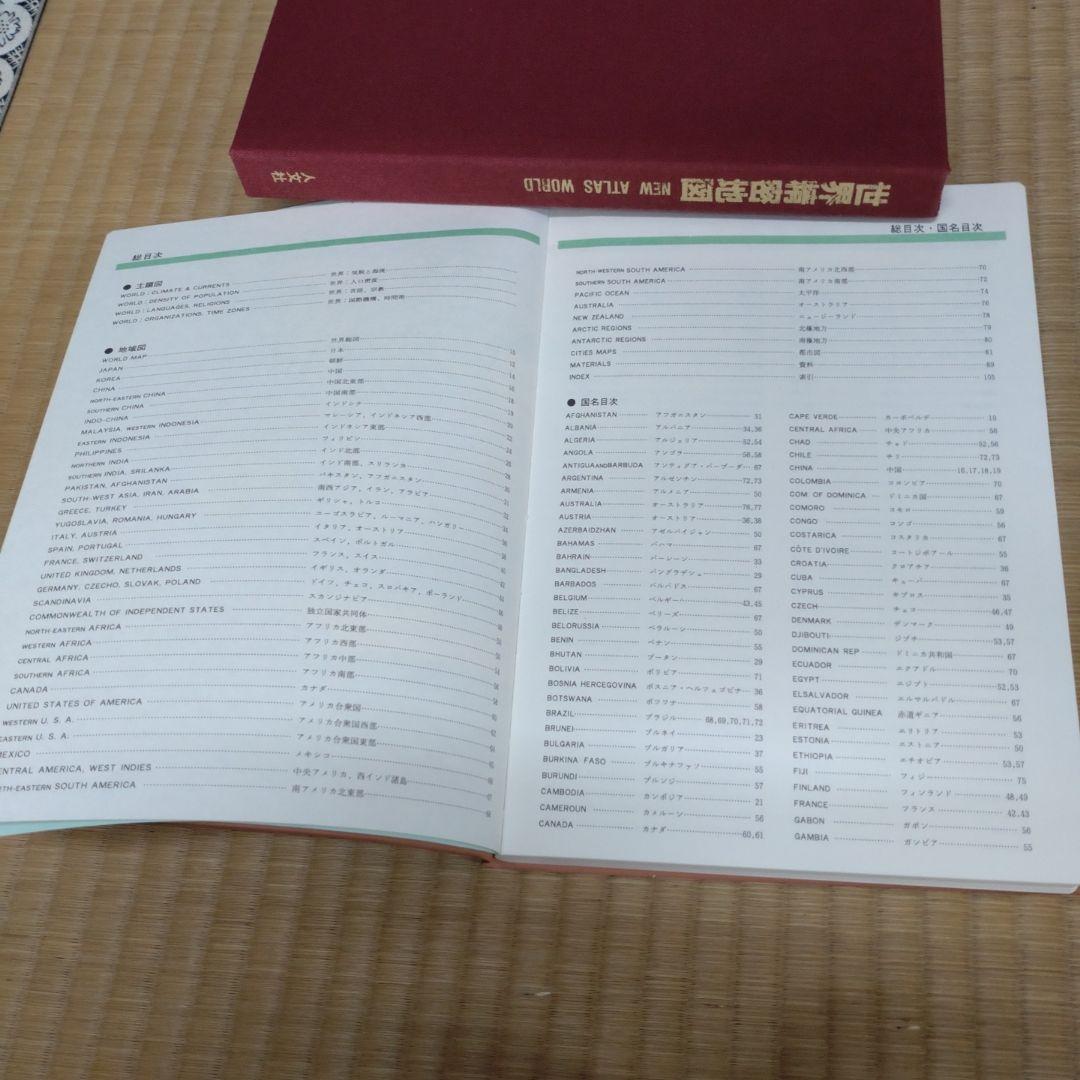 世界精密地図 NEW ATLAS WORLD 人文社
総目次
● 主題図
WORLD : CLIMATE & CURRENTS 世界:気候と海流
WORLD : DENSITY OF POPULATION 世界:人口密度
WORLD : LANGUAGES, RELIGIONS 世界:言語、宗教
WORLD : ORGANIZATIONS, TIME ZONES 世界:国際機構、時間帯
● 地域図
WORLD MAP 世界総図 10
JAPAN 日本 12
KOREA 朝鮮 14
CHINA 中国 16
NORTH-EASTERN CHINA 中国北東部 18
SOUTHERN CHINA 中国南部 19
INDO-CHINA インドシナ 20
MALAYSIA, WESTERN INDONESIA マレーシア, インドネシア西部 22
EASTERN INDONESIA インドネシア東部 24
PHILIPPINES フィリピン
NORTHERN INDIA インド北部
SOUTHERN INDIA, SRILANKA インド南部, スリランカ
PAKISTAN, AFGHANISTAN パキスタン, アフガニスタン
SOUTH-WEST ASIA, IRAN, ARABIA 南西アジア, イラン, アラビア
GREECE, TURKEY ギリシャ, トルコ
YUGOSLAVIA, ROMANIA, HUNGARY ユーゴスラビア, ルーマニア, ハンガリー
ITALY, AUSTRIA イタリア, オーストリア
SPAIN, PORTUGAL スペイン, ポルトガル
FRANCE, SWITZERLAND フランス, スイス
UNITED KINGDOM, NETHERLANDS イギリス, オランダ
GERMANY, CZECHO, SLOVAK, POLAND ドイツ, チェコ, スロバキア, ポーランド
SCANDINAVIA スカンジナビア
COMMONWEALTH OF INDEPENDENT STATES 独立国家共同体
NORTH-EASTERN AFRICA アフリカ北東部
WESTERN AFRICA アフリカ西部
CENTRAL AFRICA アフリカ中部
SOUTHERN AFRICA アフリカ南部
CANADA カナダ
UNITED STATES OF AMERICA アメリカ合衆国
WESTERN U. S. A. アメリカ合衆国西部
EASTERN U. S. A. アメリカ合衆国東部
MEXICO メキシコ
CENTRAL AMERICA, WEST INDIES 中央アメリカ, 西インド諸島
NORTH-EASTERN SOUTH AMERICA 南アメリカ北東部
総目次・国名目次
NORTH-WESTERN SOUTH AMERICA 南アメリカ北西部 70
SOUTHERN SOUTH AMERICA 南アメリカ南部 72
PACIFIC OCEAN 太平洋 74
AUSTRALIA オーストラリア 76
NEW ZEALAND ニュージーランド 78
ARCTIC REGIONS 北極地方 79
ANTARCTIC REGIONS 南極地方 80
CITIES MAPS 都市図 81
MATERIALS 資料 89
INDEX 索引 105
● 国名目次
AFGHANISTAN アフガニスタン 31
ALBANIA アルバニア 34,36
ALGERIA アルジェリア 52,54
ANGOLA アンゴラ 56,58
ANTIGUA AND BARBUDA アンティグア・バーブーダ 67
ARGENTINA アルゼンチン 72,73
ARMENIA アルメニア 50
AUSTRALIA オーストラリア 76,77
AUSTRIA オーストリア 36,38
AZERBAIZHAN アゼルバイジャン 50
BAHAMAS バハマ 67
BAHRAIN バーレーン 33
BANGLADESH バングラデシュ 29
BARBADOS バルバドス 67
BELGIUM ベルギー 43,45
BELIZE ベリーズ 67
BELORUSSIA ベラルーシ 50
BENIN ベナン 55
BHUTAN ブータン 29
BOLIVIA ボリビア 71
BOSNIA HERCEGOVINA ボスニア・ヘルツェゴビナ 36
BOTSWANA ボツワナ 58
BRAZIL ブラジル 68,69,70,71,72
BRUNEI ブルネイ 23
BULGARIA ブルガリア 37
BURKINA FASO ブルキナファソ 55
BURUNDI ブルンジ 57
CAMBODIA カンボジア 21
CAMEROUN カメルーン 56
CANADA カナダ 60,61
CAPE VERDE カーボベルデ 10
CENTRAL AFRICA 中央アフリカ 56
CHAD チャド 52,56
CHILE チリ 72,73
CHINA 中国 16,17,18,19
COLOMBIA コロンビア 70
COM. OF DOMINICA ドミニカ国 67
COMORO コモロ 59
CONGO コンゴ 56
COSTARICA コスタリカ 67
CÔTE D'IVOIRE コートジボアール 55
CROATIA クロアチア 36
CUBA キューバ 67
CYPRUS キプロス 35
CZECH チェコ 46,47
DENMARK デンマーク 49
DJIBOUTI ジブチ 53,57
DOMINICAN REP ドミニカ共和国 67
ECUADOR エクアドル 70
EGYPT エジプト 52,53
ELSALVADOR エルサルバドル 67
EQUATORIAL GUINEA 赤道ギニア 56
ERITREA エリトリア 53
ESTONIA エストニア 50
ETHIOPIA エチオピア 53,57
FIJI フィジー 75
FINLAND フィンランド 48,49
FRANCE フランス 42,43
GABON ガボン 56
GAMBIA ガンビア 55